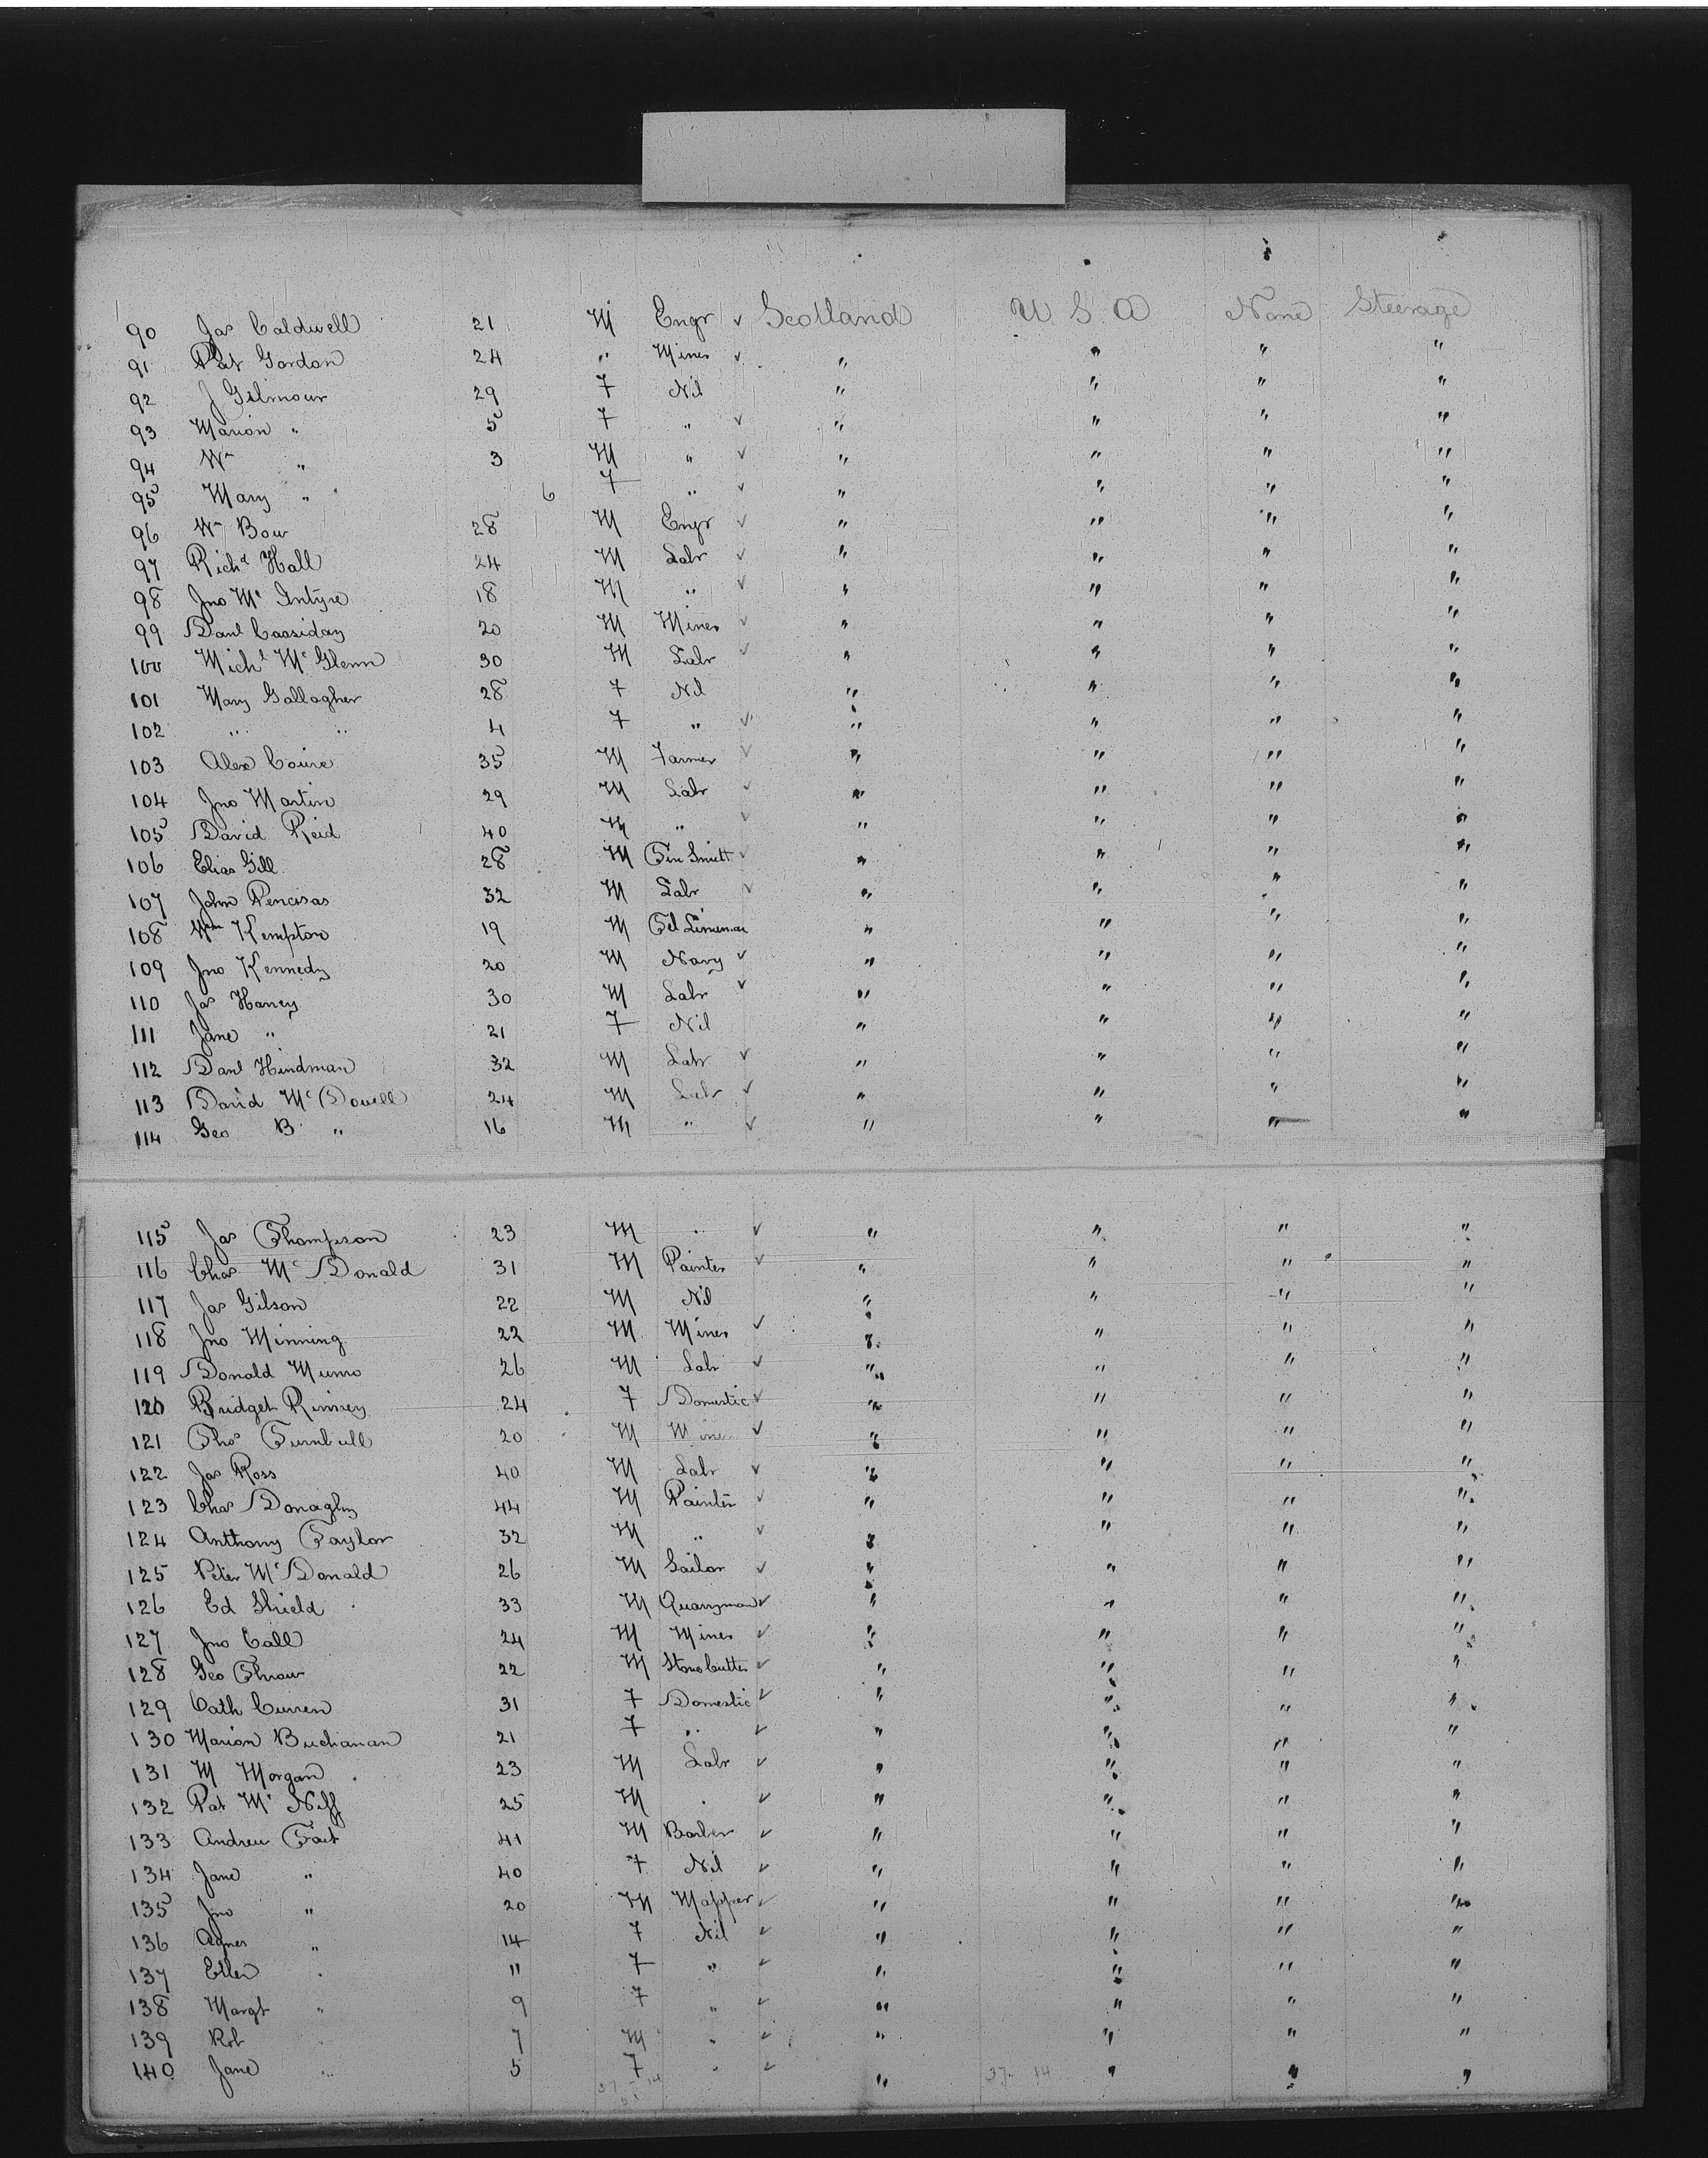 90 Jas Caldwell 21 M Engr ✓ Scotland U S A None Steerage
91 Pat Gordon 24 " Miner ✓ " " " "
92 J Gilmour 29 F Nil " " " "
93 Marion " 5 F " ✓ " " " "
94 Wm " 3 M " ✓ " " " "
95 Mary " 6 F " ✓ " " " "
96 Wm Bow 28 M Engr ✓ " " " "
97 Richd Hall 24 M Labr ✓ " " " "
98 Jno Mc Intyre 18 M " ✓ " " " "
99 Danl Cassiday 20 M Miner ✓ " " " "
100 Michl Mc Glenn 30 M Labr ✓ " " " "
101 Mary Gallagher 28 F Nil " " " "
102 " " 4 F " ✓ " " " "
103 Alex 35 M Farmer ✓ " " " "
104 Jno Martin 29 M Labr ✓ " " " "
105 David Reid 40 M " ✓ " " " "
106 Elias Gill 28 M Tin Smith ✓ " " " "
107 John 32 M Labr ✓ " " " "
108 Wm Kempton 19 M Tel " " " "
109 Jno Kennedy 20 M Navy ✓ " " " "
110 Jas Haney 30 M Labr ✓ " " " "
111 Jane " 21 F Nil " " " "
112 Danl Hindman 32 M Labr ✓ " " " "
113 David Mc Dowell 24 M Labr ✓ " " " "
114 Geo B " 16 M " ✓ " " " "
115 Jas Thompson 23 M " ✓ " " " "
116 Chas Mc Donald 31 M Painter ✓ " " " "
117 Jas Gilson 22 M Nil " " " "
118 Jno Winning 22 M Miner ✓ " " " "
119 Donald Munro 26 M Labr ✓ " " " "
120 Bridget Rinney 24 F Domestic ✓ " " " "
121 Thos Turnbull 20 M Miner ✓ " " " "
122 Jas Ross 40 M Labr ✓ " " " "
123 Chas Donaghy 44 M Painter ✓ " " " "
124 Anthony Taylor 32 M " ✓ " " " "
125 Peter Mc Donald 26 M Sailor ✓ " " " "
126 Ed Shield 33 M Quarryman ✓ " " " "
127 Jno Call 24 M Miner ✓ " " " "
128 Geo Thraw 22 M Stone Cutter ✓ " " " "
129 Cath Curren 31 F Domestic ✓ " " " "
130 Marion Buchanan 21 F " ✓ " " " "
131 M Morgan 23 M Labr ✓ " " " "
132 Pat Mc Niff 25 M " ✓ " " " "
133 Andrew Tait 41 M Barber ✓ " " " "
134 Jane " 40 F Nil ✓ " " " "
135 Jno " 20 M Mapper ✓ " " " "
136 Agnes " 14 F Nil ✓ " " " "
137 Ellen " 11 F " ✓ " " " "
138 Margt " 9 F " ✓ " " " "
139 Rob 7 M " ✓ " " " "
140 Jane " 5 F " ✓ " " " "
37 14